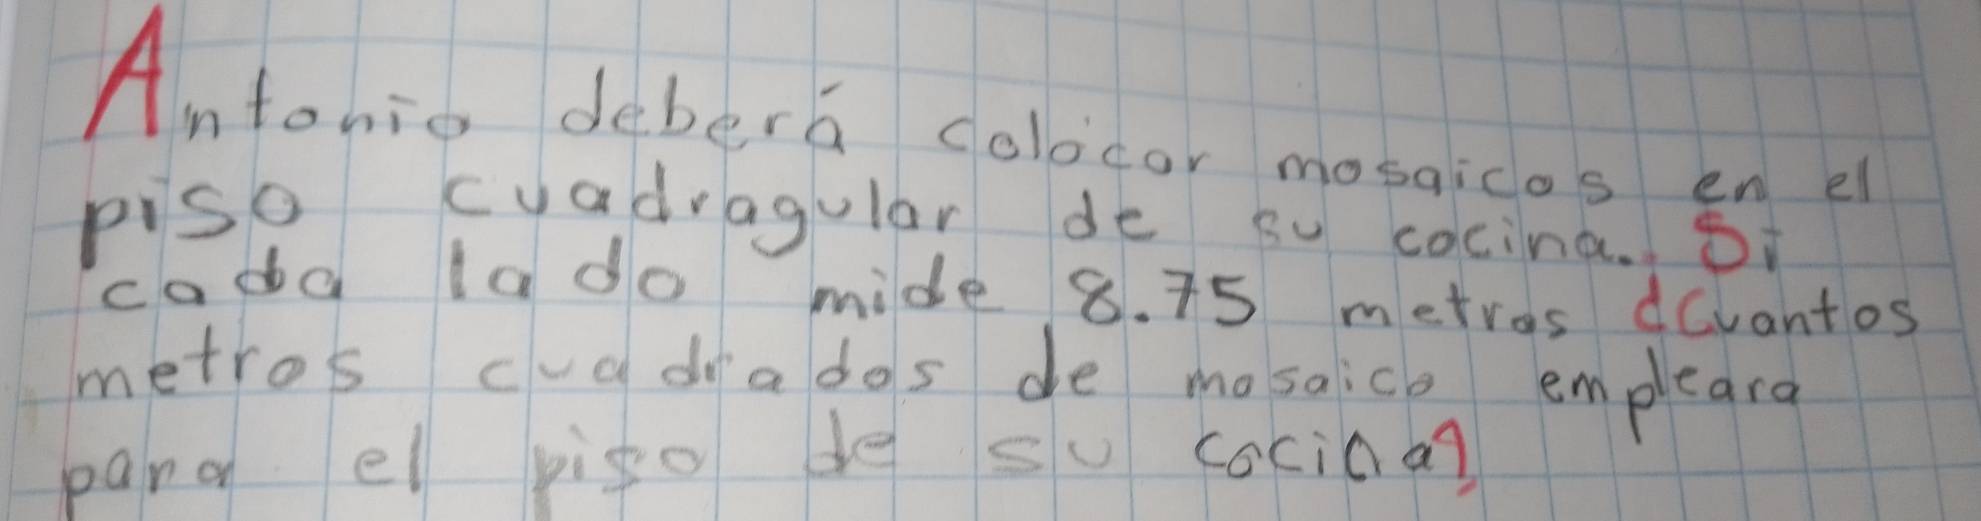 Antonio deberá colocar mosaicos en el
piso cuadragular de su cocina. Si
cada lado mide 8.75 metros ¿Cuantos
metros cuadrados de mosaico empleara
para el piso de su cocina?